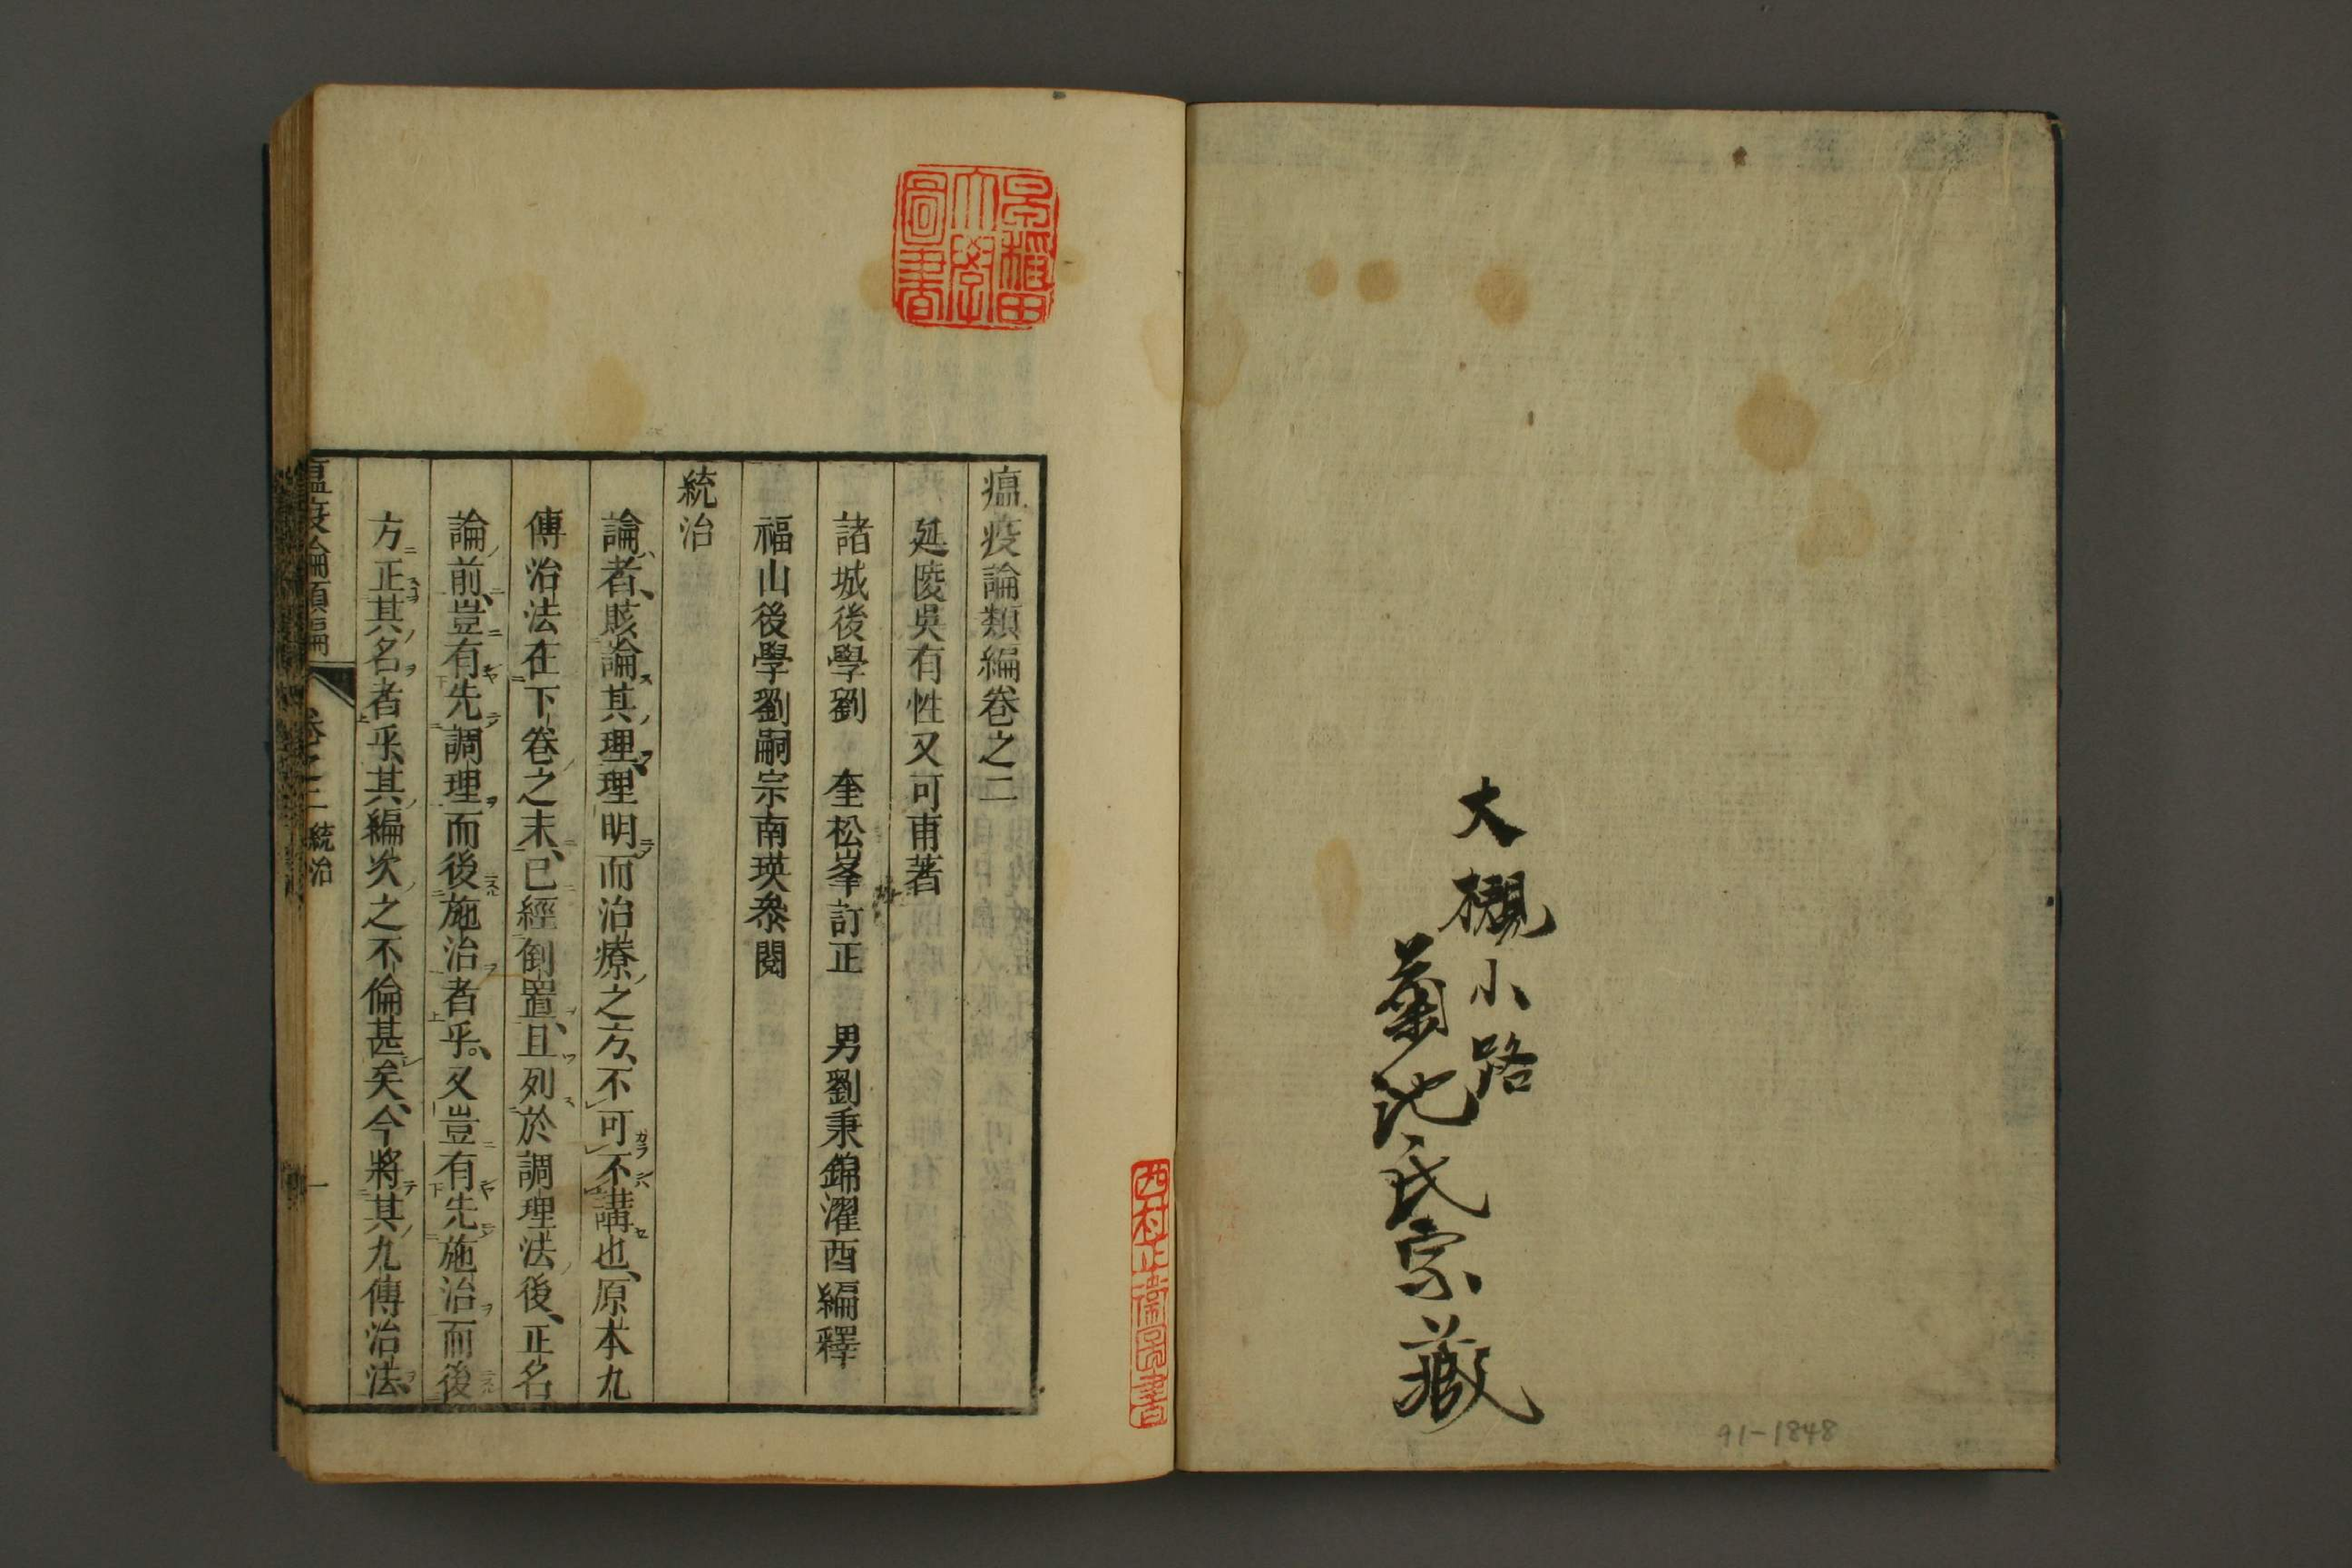 大槻小路
菊池氏宗藏
91-1848
早稲田
大學
圖書
西村
圖書
瘟疫論類編卷之二
延陵吳有性又可甫著
諸城後學劉 奎松峯訂正 男劉秉錦濯西編釋
福山後學劉嗣宗南瑛叅閱
統治
論者、賅論其理、理明而治療之方、不可不講也、原本九
傳治法在下卷之末、已經倒置、且列於調理法後、正名
論前、豈有先調理而後施治者乎。又豈有先施治而後
方正其名者乎、其編次之不倫甚矣、今將其九傳治法
瘟疫論類編 卷之二 統治 一